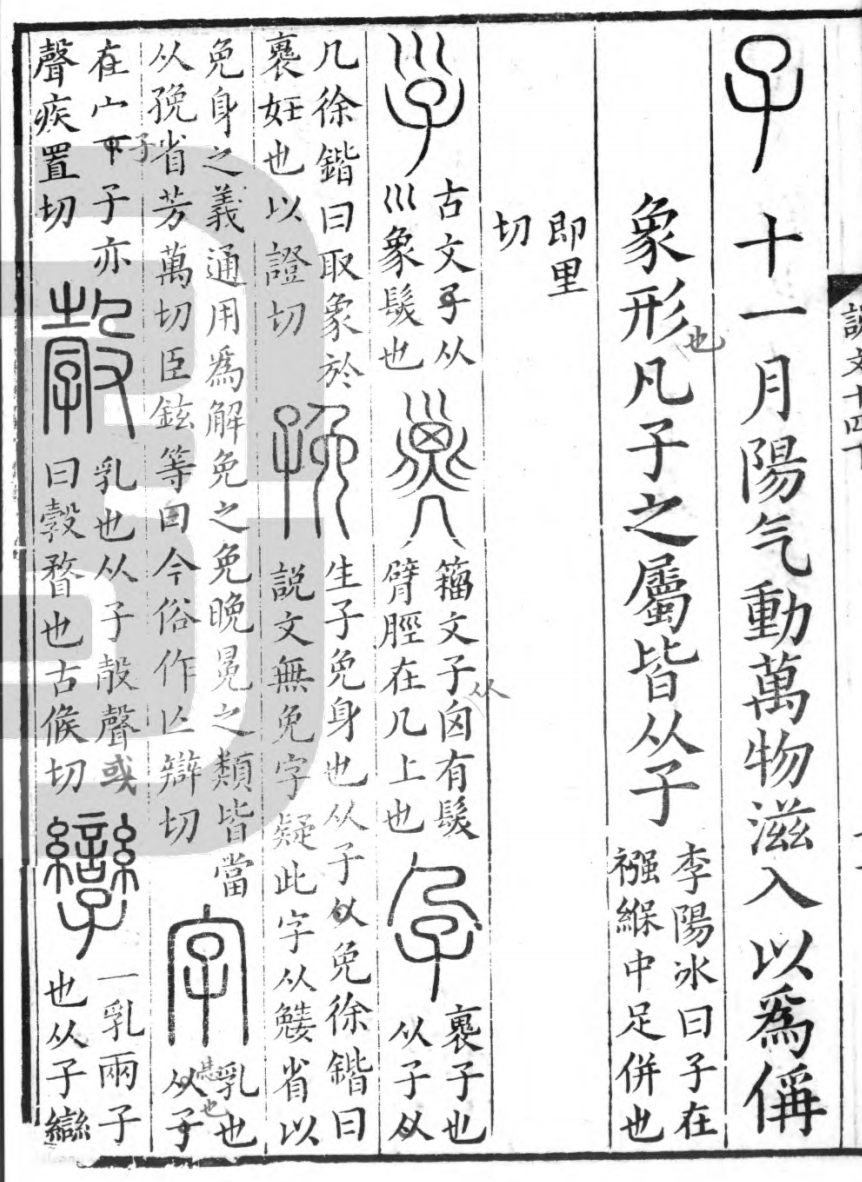 說文十四下
子 十一月陽气動萬物滋入以爲偁
象形凡子之屬皆从子
也
李陽冰曰子在
襁緥中足併也
即里
切
𡿹
古文子从
巛象髮也
𢀇
籀文子囟有髮
从
臂脛在几上也
孕
裹子也
从子从
几徐鍇曰取象於
裹妊也以證切
㝃
生子免身也从子从免徐鍇曰
說文無免字疑此字从省以
免身之義通用爲解免之免晚冕之類皆當
从㝃省芳萬切臣鉉等曰今俗作亾辯切
字
乳也
从子
也
在宀下子亦
子
聲疾置切
㝅
乳也从子㱿聲或
曰㝅瞀也古候切
孿
一乳兩子
也从子䜌